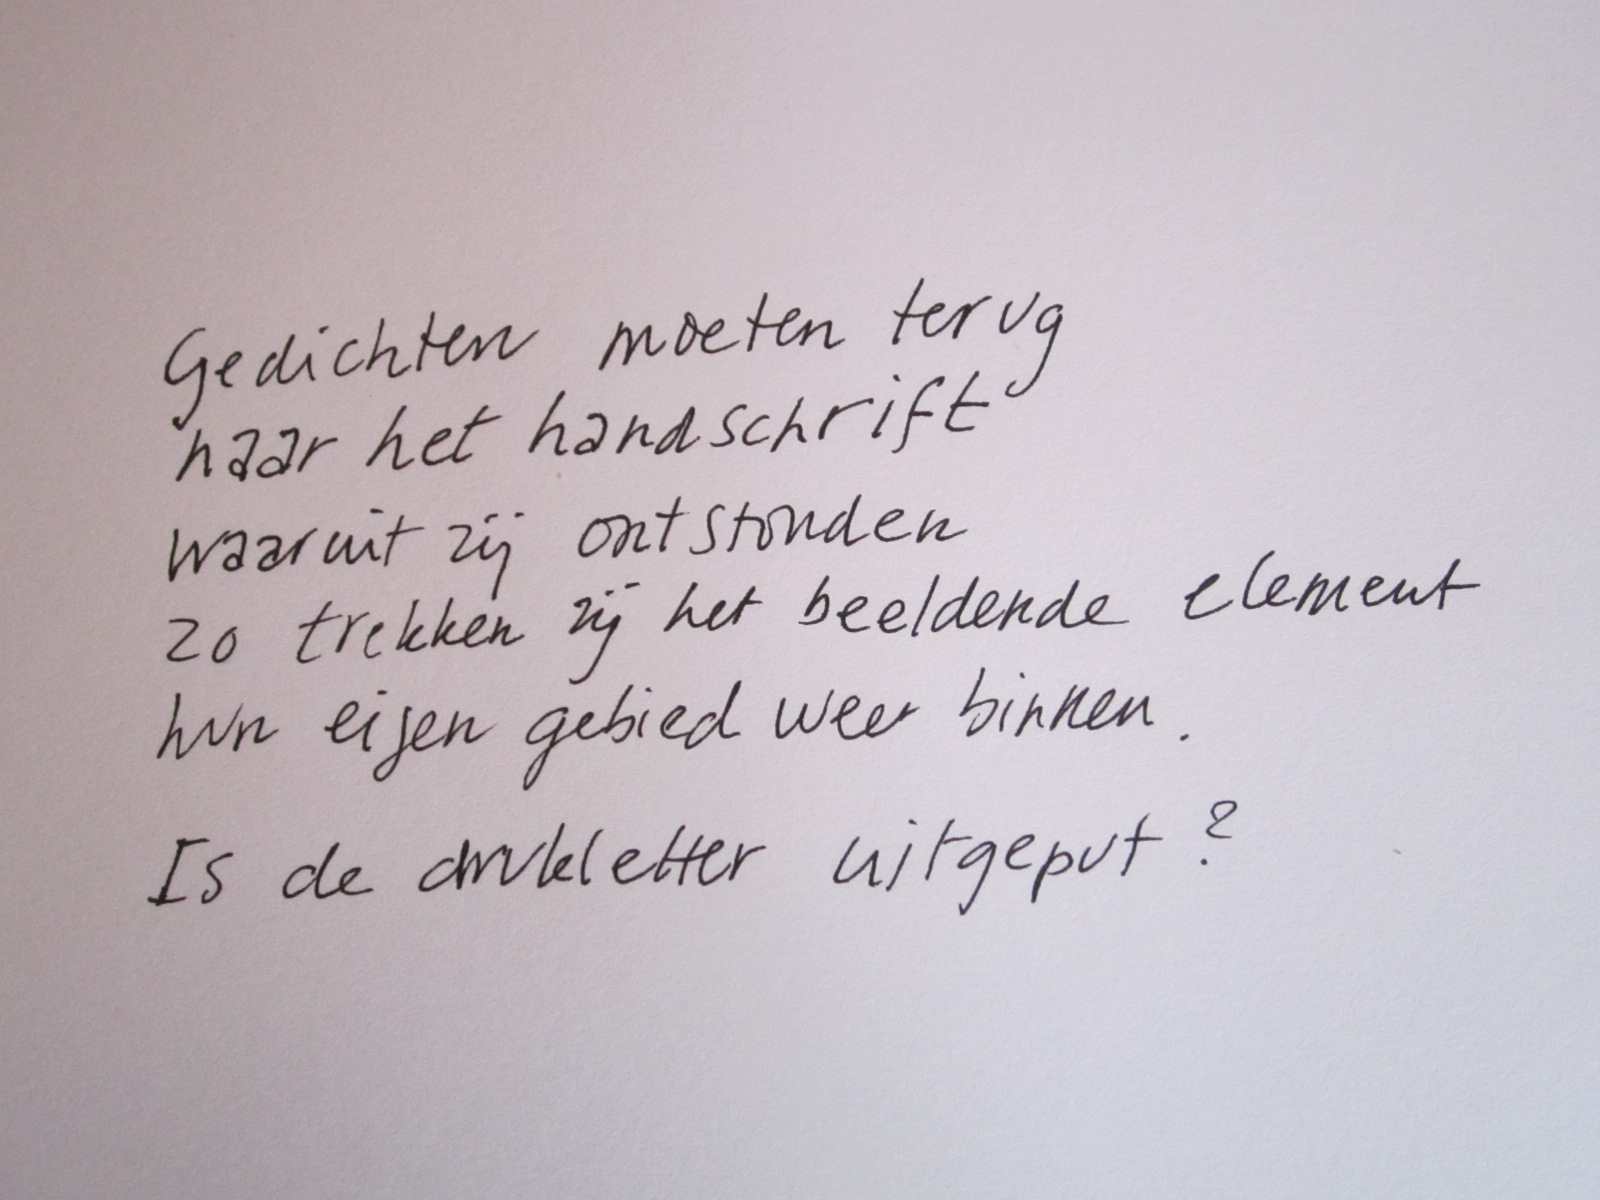 Gedichten moeten terug
naar het handschrift
waaruit zij ontstonden
zo trekken zij het beeldende element
hun eigen gebied weer binnen.
Is de drukletter uitgeput?